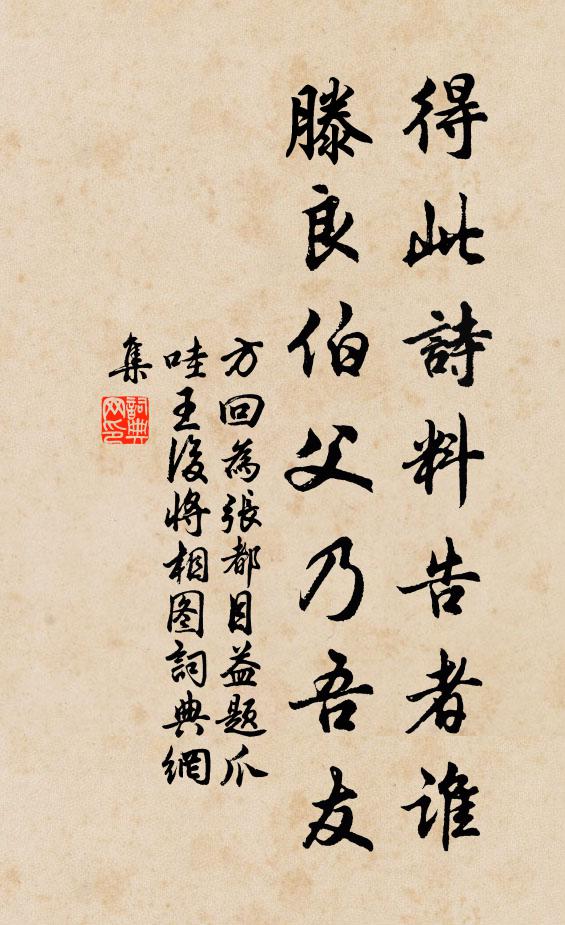 得此詩料告者誰
滕良伯父乃吾友
方回為張都目益題爪
哇王後將相圖詞典網
集
詞典
网印